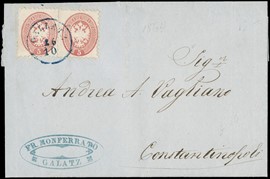 GALATZ
16
10
Sigr
Andrea A. Vagliano
Constantinopoli
FR. MONFERRATO
GALATZ